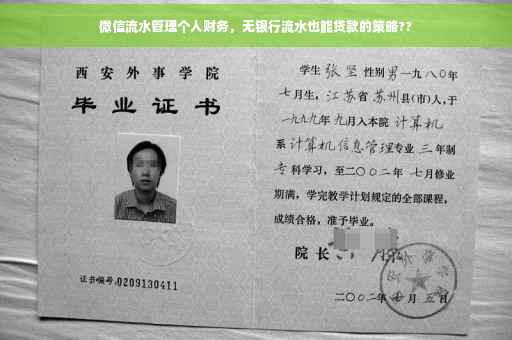 微信流水管理个人财务，无银行流水也能贷款的策略??
西安外事学院
毕业证书
证书编号:0209130411
学生张坚性别男一九八〇年
七月生，江苏省苏州县(市)人，于
一九九九年九月入本院计算机
系计算机信息管理专业三年制
专科学习，至二〇〇二年七月修业
期满，学完教学计划规定的全部课程，
成绩合格，准予毕业。
院长
二〇〇二年七月五日